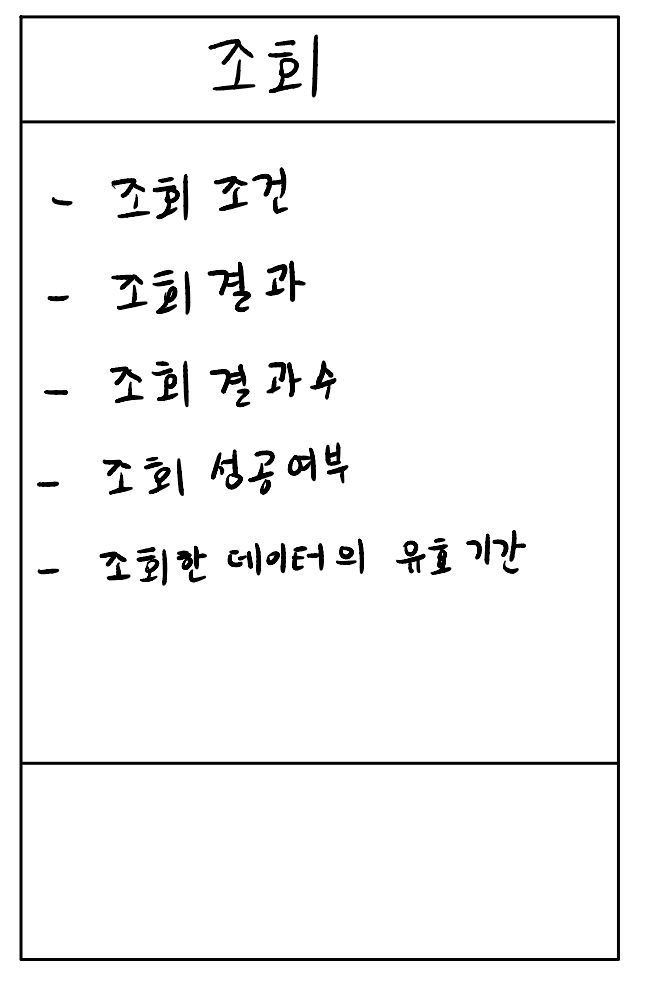 조회
- 조회 조건
- 조회 결과
- 조회 결과수
- 조회 성공여부
- 조회한 데이터의 유효기간